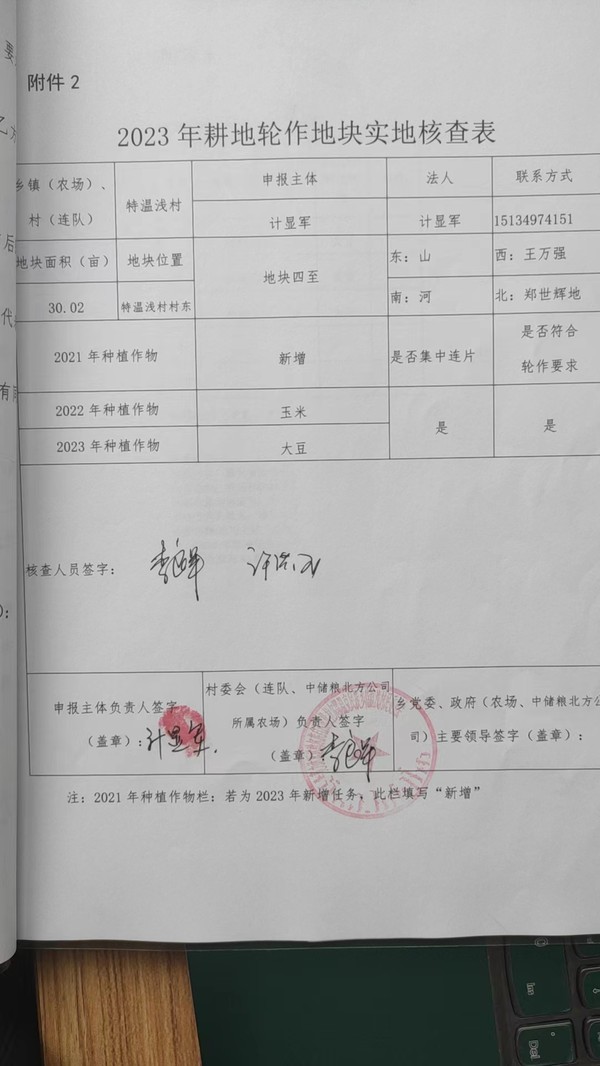 附件2
2023年耕地轮作地块实地核查表
乡镇（农场）、
村（连队）
特温浅村
申报主体
法人
联系方式
计显军
计显军
15134974151
地块面积（亩）
地块位置
地块四至
东：山
西：王万强
30.02
特温浅村村东
南：河
北：郑世辉地
2021年种植作物
新增
是否集中连片
是否符合
轮作要求
2022年种植作物
玉米
是
是
2023年种植作物
大豆
核查人员签字：
申报主体负责人签字
（盖章）：计显军
村委会（连队、中储粮北方公司
所属农场）负责人签字
（盖章）
乡党委、政府（农场、中储粮北方公
司）主要领导签字（盖章）：
注：2021年种植作物栏：若为2023年新增任务，此栏填写“新增”